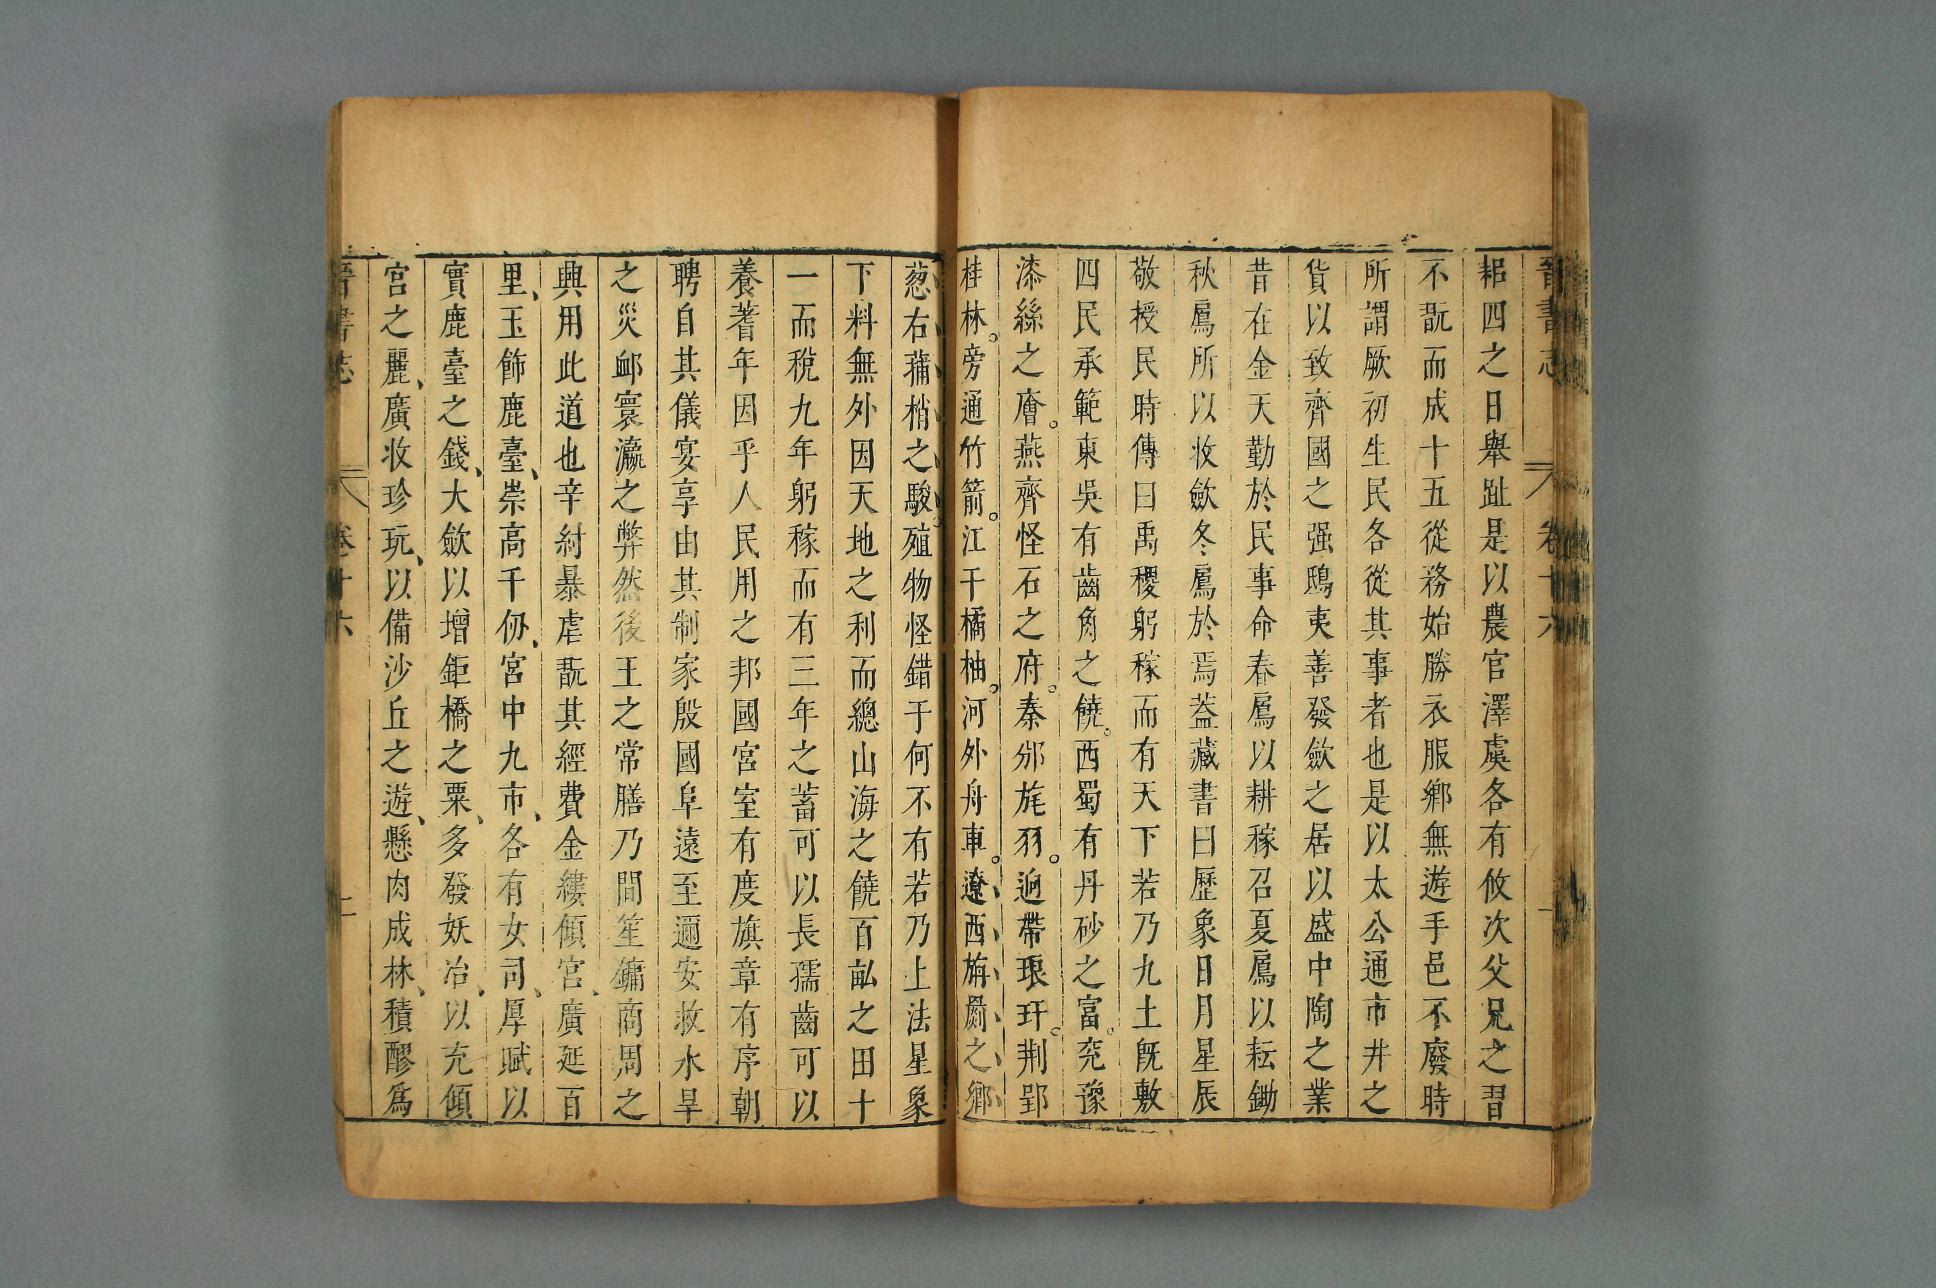 晉書志 卷十六 一
耜四之日舉趾是以農官澤虞各有攸次父兄之習
不翫而成十五從務始勝衣服鄉無遊手邑不廢時
所謂厥初生民各從其事者也是以太公通市井之
貨以致齊國之强鴟夷善發斂之居以盛中陶之業
昔在金天勤於民事命春鳸以耕稼召夏鳸以耘鋤
秋鳸所以收斂冬鳸於焉蓋藏書曰歷象日月星辰
敬授民時傳曰禹稷躬稼而有天下若乃九土旣敷
四民承範東吳有齒角之饒。西蜀有丹砂之富。兖豫
漆絲之廥。燕齊怪石之府。秦邠旄羽。逈帶琅玕。荆郢
桂林。旁通竹箭。江干橘柚。河外舟車。遼西旃罽之鄉、
葱右蒲梢之駿。殖物怪錯于何不有若乃上法星象
下料無外因天地之利而總山海之饒百畝之田十
一而稅九年躬稼而有三年之蓄可以長孺齒可以
養耆年因乎人民用之邦國宮室有度旗章有序朝
聘自其儀宴享由其制家殷國阜遠至邇安救水旱
之災卹寰瀛之弊然後王之常膳乃間笙鏞商周之
興用此道也辛紂暴虐翫其經費金縷傾宮、廣延百
里、玉飾鹿臺、崇高千仞、宮中九市、各有女司、厚賦以
實鹿臺之錢、大斂以增鉅橋之粟、多發妖冶、以充傾
宮之麗、廣收珍玩、以備沙丘之遊、懸肉成林、積醪爲
晉書志 卷十六 二